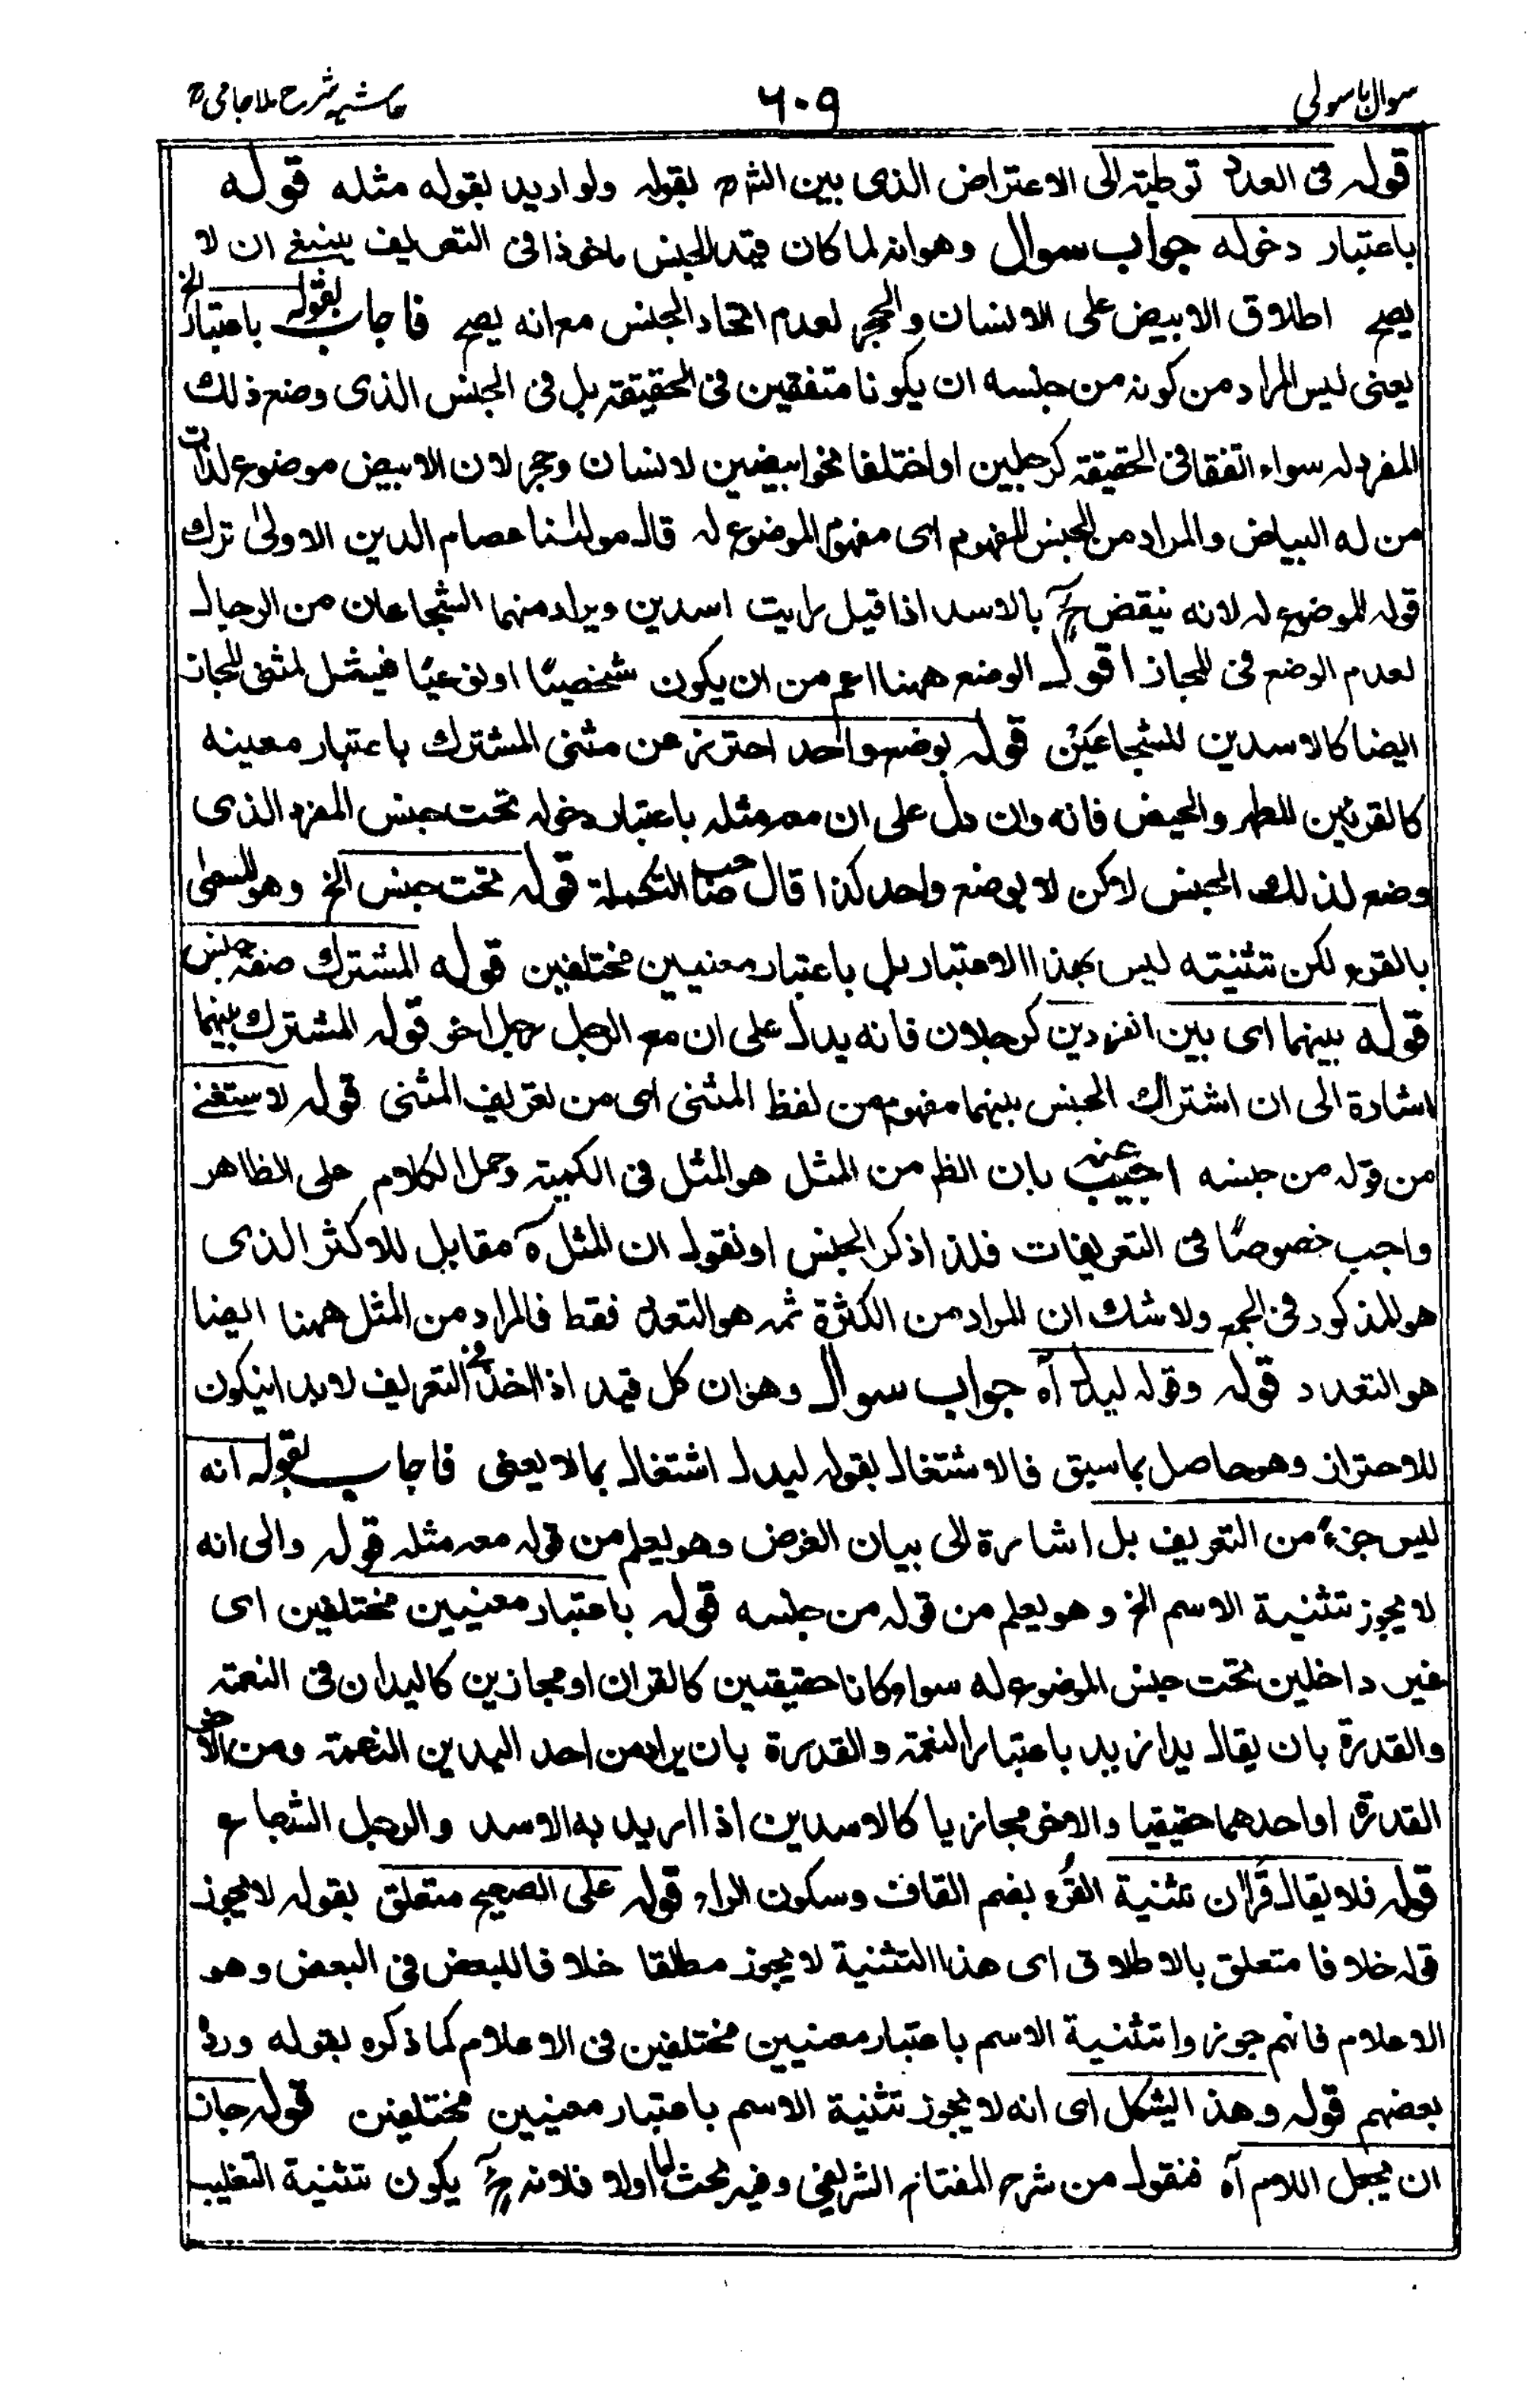 سوال باسولی
۶۰۹
حاشیہ شرح ملاجامی
قوله فی العدد توطیة الی الاعتراض الذی بین الشرح بقوله ولو ارید بقوله مثله قوله
باعتبار دخوله جواب سوال وهو انه لما کان قید الجنس ماخوذا فی التعریف ینبغی ان لا
یصح اطلاق الابیض علی الانسان والحجر لعدم اتحاد الجنس مع انه یصح فاجاب بقوله باعتبار الخ
یعنی لیس المراد من کونه من جنسه ان یکونا متفقین فی الحقیقة بل فی الجنس الذی وضع ذلك
المفرد له سواء اتفقا فی الحقیقة کرجلین او اختلفا نحو ابیضین لانسان وحجر لان الابیض موضوع لذات
من له البیاض والمراد من الجنس المفهوم ای مفهوم الموضوع له قال مولٰنا عصام الدین الاولیٰ ترك
قوله الموضوع له لانه ینقض ح بالاسد اذا قیل رایت اسدین ویراد منهما الشجاعان من الرجال
لعدم الوضع فی المجاز اقول الوضع ههنا اعم من ان یکون شخصیًا او نوعیًا فیشمل لمثنی المجاز
ایضا کالاسدین للشجاعین قوله بوضع واحد احترز عن مثنی المشترك باعتبار معینه
کالقرئین للطهر والحیض فانه وان دل علی ان معه مثله باعتبار دخوله تحت جنس المفرد الذی
وضع لذلك الجنس لاکن لا بوضع واحد کذا قال صاحب التکملة قوله تحت جنس الخ وهو المسمٰی
بالقرء لکن تثنیته لیس بهذا الاعتبار بل باعتبار معنیین مختلفین قوله المشترك صفة جنس
قوله بینهما ای بین انفردین کرجلان فانه یدل علی ان مع الرجل رجل اخر قوله المشترك بینهما
اشادة الی ان اشتراك الجنس بینهما مفهوم من لفظ المثنی ای من تعریف المثنی قوله لاستغنے
من قوله من جنسه اجیب عنه بان الظم من المثل هو المثل فی الکمیة وحمل الکلام علی الظاهر
واجب خصوصًا فی التعریفات فلذا ذکر الجنس او نقول ان المثل ه مقابل للاکثر الذی
هو المذکور فی الجمع ولا شك ان المراد من الکثرة ثمه هو التعدد فقط فالمراد من المثل ههنا ایضا
هو التعدد قوله وقوله لیدل آه جواب سوال وهو ان کل قید اذا اخذ فی التعریف لابد انیکون
للاحتراز وهو حاصل بما سبق فالاشتغال بقوله لیدل اشتغال بما لا یعنی فاجاب بقوله انه
لیس جزءً من التعریف بل اشارة الی بیان الغرض وهو یعلم من قوله معه مثله قوله والی انه
لا یجوز تثنیة الاسم الخ وهو یعلم من قوله من جنسه قوله باعتبار معنیین مختلفین ای
غیر داخلین تحت جنس الموضوع له سواء کانا حقیقیین کالقران او مجازین کالیدان فی النعمة
والقدرة بان یقال یدا زید باعتبار النعمة والقدرة بان یراد من احد الیدین النعمة ومن الاخر
القدرة او احدهما حقیقیا والاخر مجازیا کالاسدین اذا ارید به الاسد والرجل الشجاع
قوله فلا یقال قرآن تثنیة القرء بضم القاف وسکون الراء قوله علی الصحیح متعلق بقوله لا یجوز
قوله خلافا متعلق بالاطلاق ای هذا التثنیة لا یجوز مطلقا خلافا للبعض فی البعض وهو
الاعلام فانهم جوزوا تثنیة الاسم باعتبار معنیین مختلفین فی الاعلام کما ذکره بقوله ورد
بعضهم قوله وهذ الیشکل ای انه لا یجوز تثنیة الاسم باعتبار معنیین مختلفین قوله جاز
ان یجعل اللام آه فنقول من شرح المفتاح الشریفی وفیه بحث اما اولا فلانه ح یکون تثنیة التغلیب